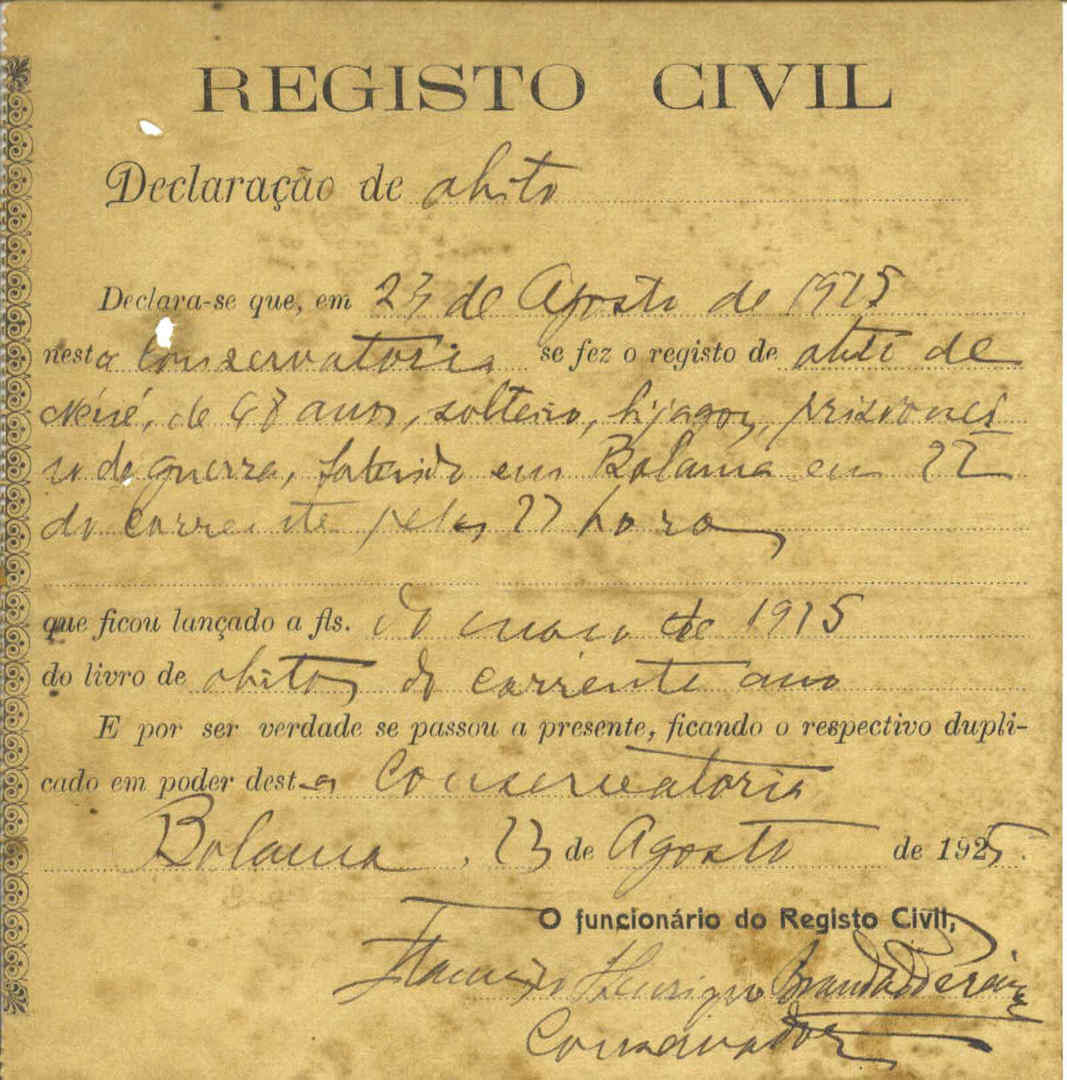 REGISTO CIVIL
Declaração de obito
Declara-se que, em 23 de Agosto de 1925
nesta Conservatoria se fez o registo de obito de
de anos, solteiro, bijagoz, prisionei
ro de guerra, falecido em Bolama em 22
do corrente pelas 22 horas
que ficou lançado a fls. do de 1925
do livro de obitos do corrente ano
E por ser verdade se passou a presente, ficando o respectivo dupli-
cado em poder desta Conservatoria
Bolama, 23 de Agosto de 1925.
O funcionário do Registo Civil,
Henrique Brandão Pereira
Conservador